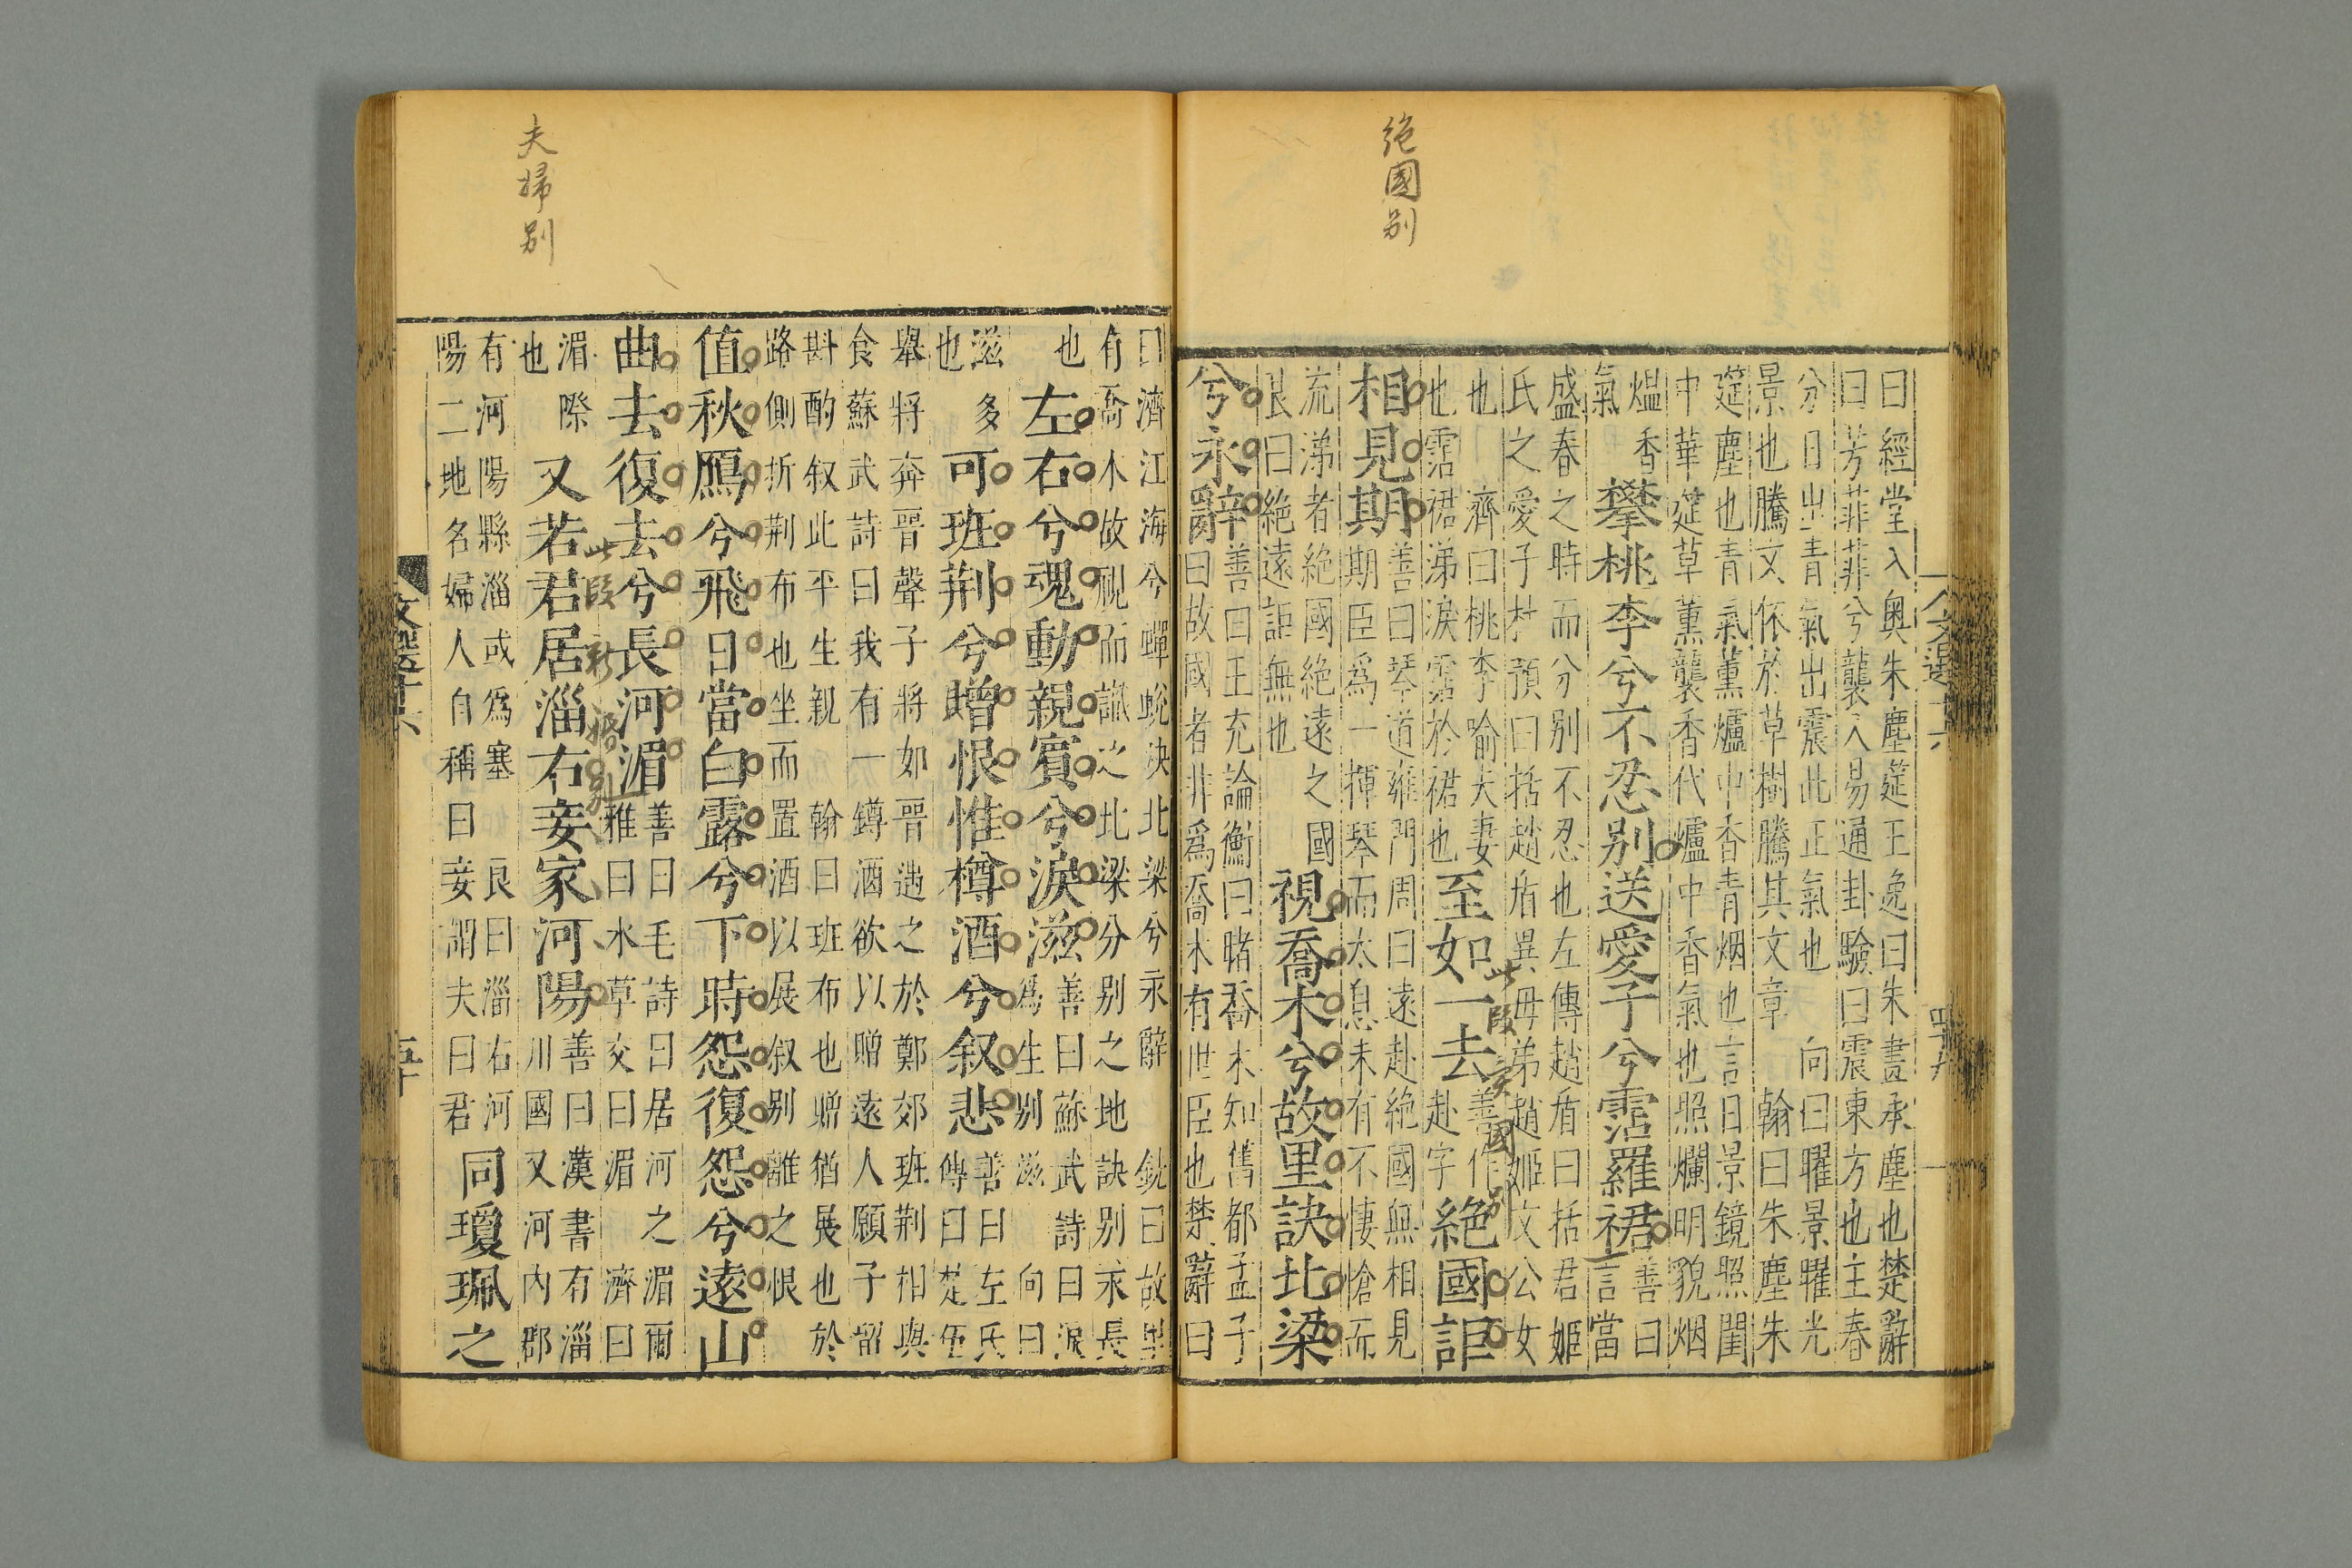 絶國别
文選十六
四十九
曰經堂入奧朱塵筵王逸曰朱畫承塵也楚辭
曰芳菲菲兮襲人易通卦驗曰震東方也主春
分日出青氣出震此正氣也 向曰曜景曜光
景也騰文依於草樹騰其文章 翰曰朱塵朱
筵塵也青氣薰爐中香青烟也言日景鏡照閨
中華筵草薰襲香代爐中香氣也照爛明貌烟
熅香
氣
攀桃李兮不忍别送愛子兮霑羅裙
善曰
言當
盛春之時而分别不忍也左傳趙盾曰括君姬
氏之愛子杜預曰括趙盾異母弟趙姬文公女
也 濟曰桃李喻夫妻
也霑裙涕淚霑於裙也
至如一去
善作
赴字
絶國詎
此段言絶國别
相見期
善曰琴道雍門周曰遠赴絶國無相見
期臣爲一揮琴而太息未有不悽愴而
流涕者絶國絶遠之國
良曰絶遠詎無也
視喬木兮故里訣北梁
兮永辭
善曰王充論衡曰睹喬木知舊都孟子
曰故國者非爲喬木有世臣也楚辭曰
夫婦别
曰濟江海兮蟬蛻决北梁兮永辭 銑曰故里
有喬木故視而識之北梁分别之地訣别永長
也
左右兮魂動親賓兮淚滋
善曰蘇武詩曰淚
爲生别滋 向曰
滋多
也
可班荆兮贈恨惟樽酒兮叙悲
善曰左氏
傳曰楚伍
舉將奔晋聲子將如晋遇之於鄭郊班荆相與
食蘇武詩曰我有一罇酒欲以贈遠人願子留
斟酌叙此平生親 翰曰班布也贈猶展也於
路側折荆布也坐而置酒以展叙别離之恨
值秋鴈兮飛日當白露兮下時怨復怨兮遠山
曲去復去兮長河湄
善曰毛詩曰居河之湄爾
雅曰水草交曰湄 濟曰
湄際
也
此段新婚别
又若君居淄右妾家河陽
善曰漢書有淄
川國又河内郡
有河陽縣淄或爲塞 良曰淄右河
陽二地名婦人自稱曰妾謂夫曰君
同瓊珮之
文選十六
五十